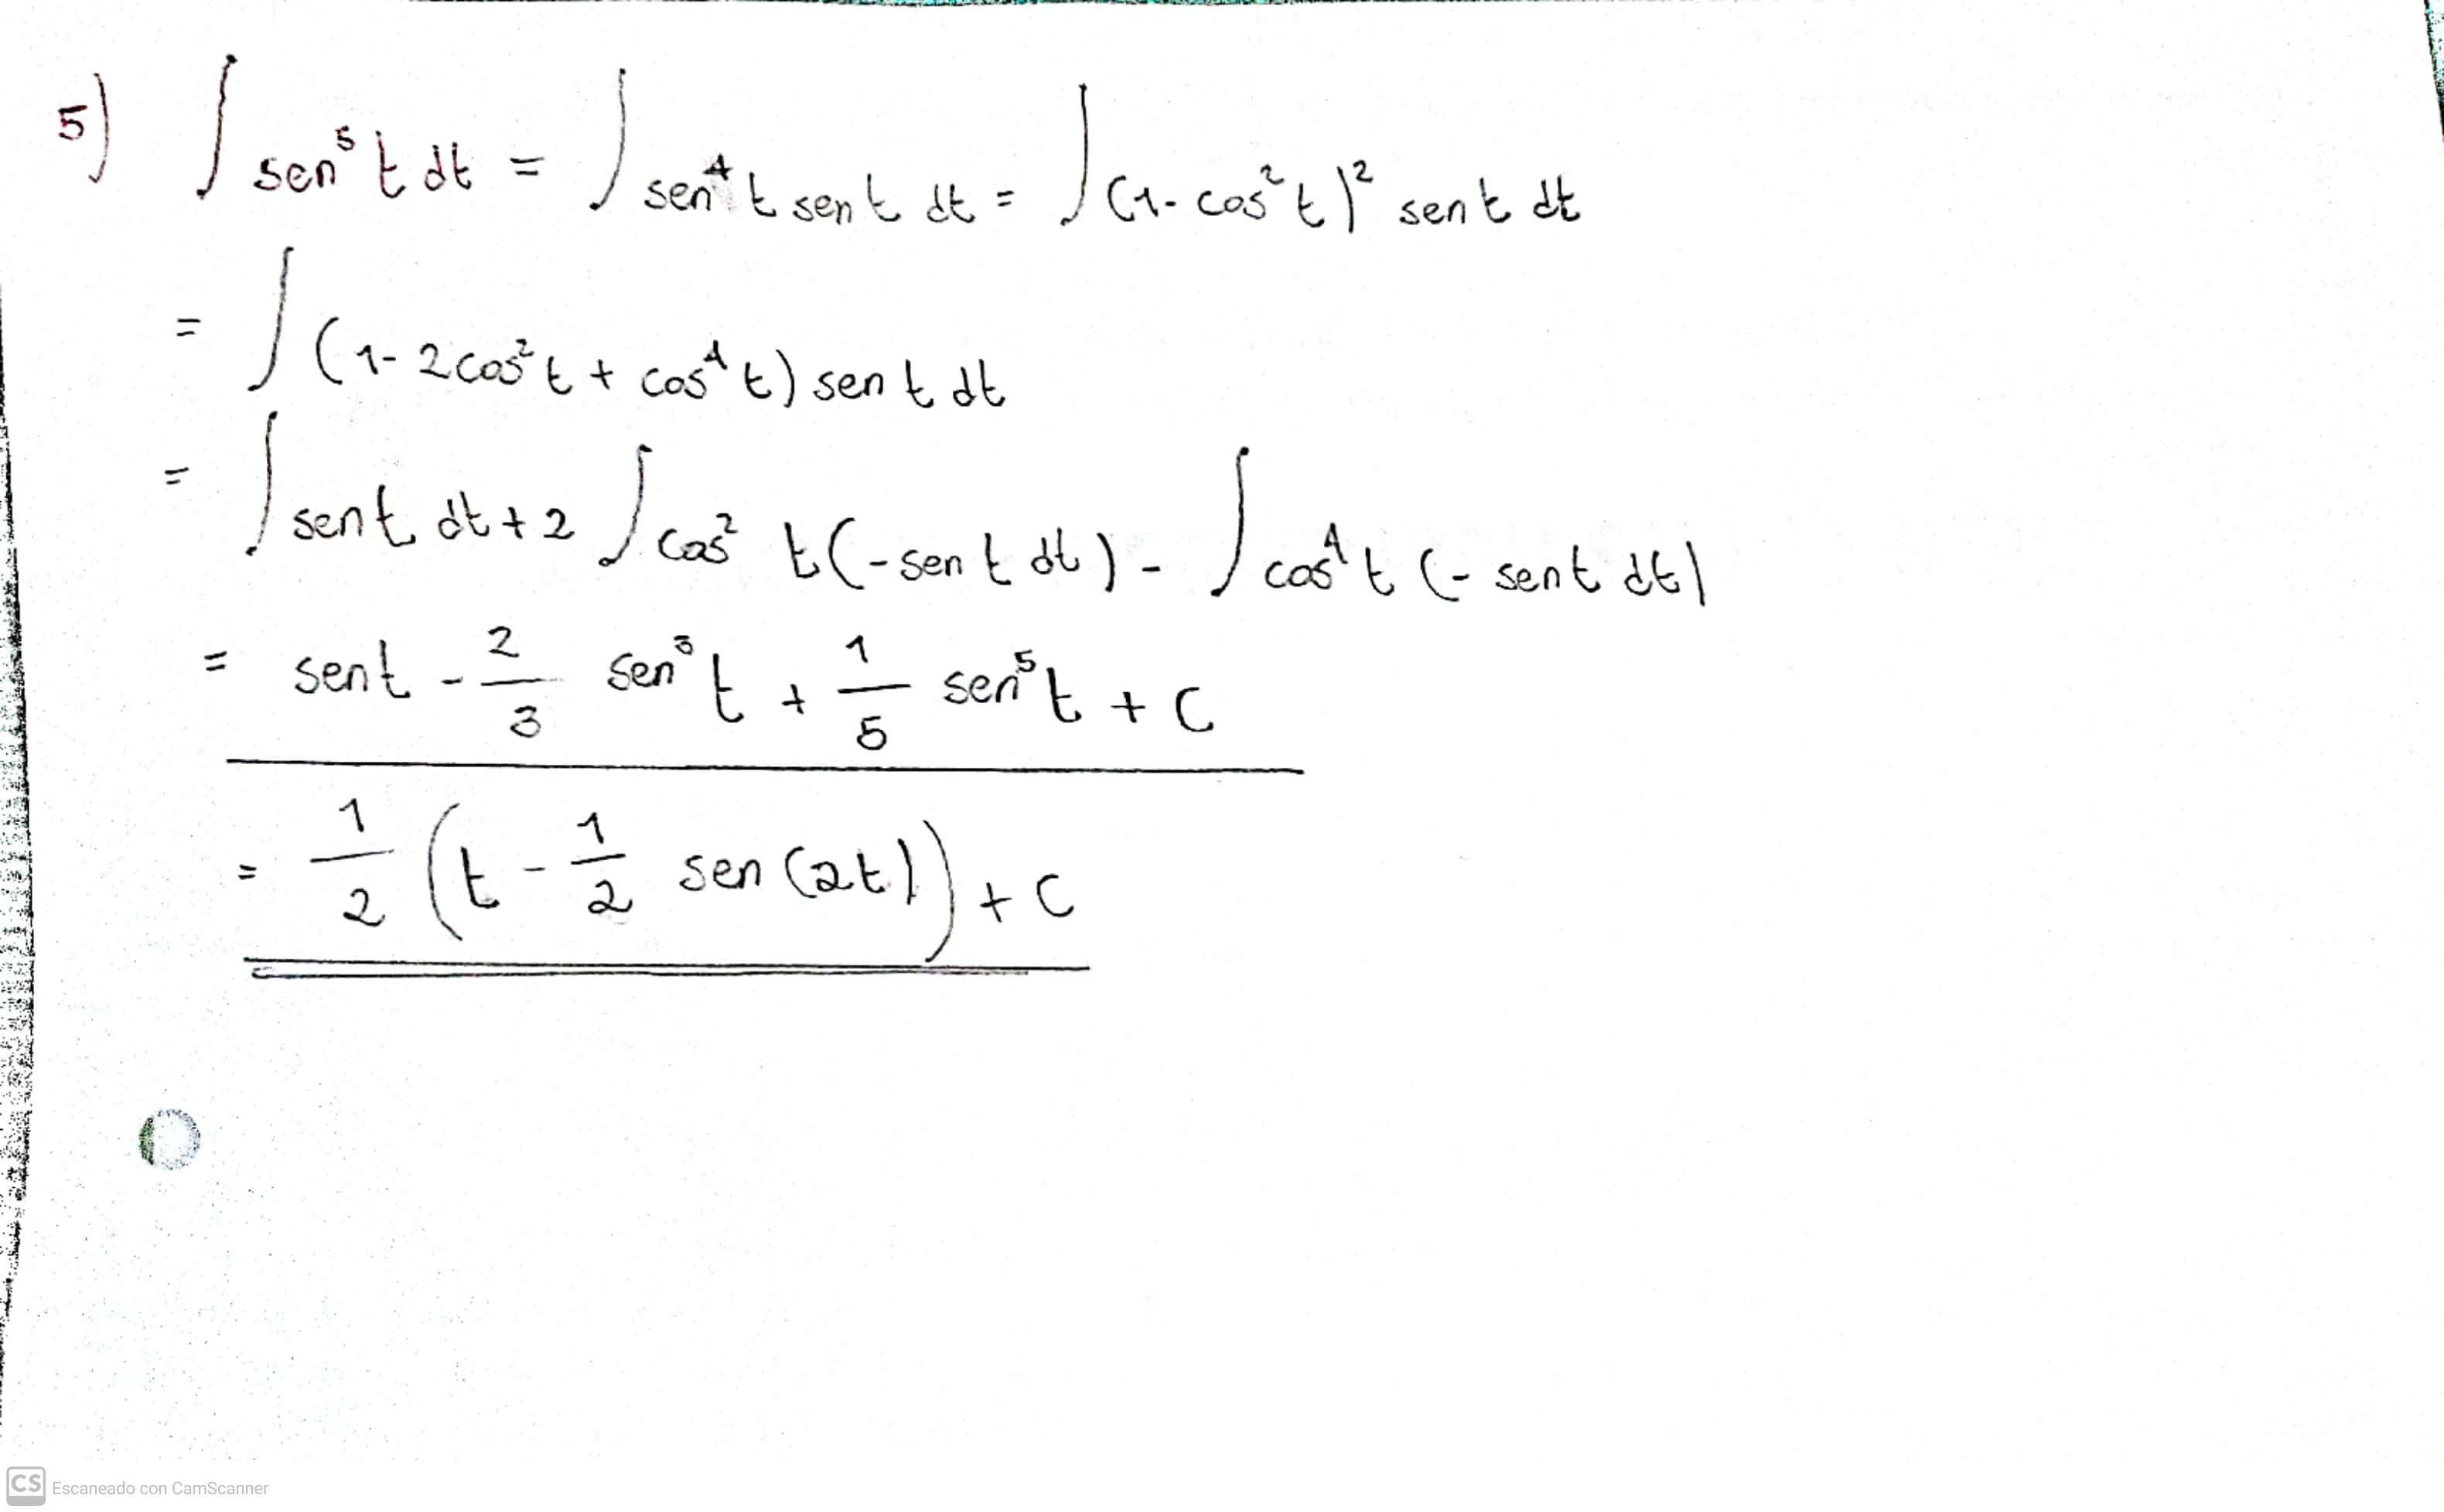 5) ∫ sen⁵ t dt = ∫ sen⁴ t sen t dt = ∫ (1 - cos² t)² sen t dt
= ∫ (1 - 2cos² t + cos⁴ t) sen t dt
= ∫ sen t dt + 2 ∫ cos² t (-sen t dt) - ∫ cos⁴ t (- sen t dt)
= sen t - 2/3 sen³ t + 1/5 sen⁵ t + C
= 1/2 (t - 1/2 sen (2t)) + C
CS Escaneado con CamScanner